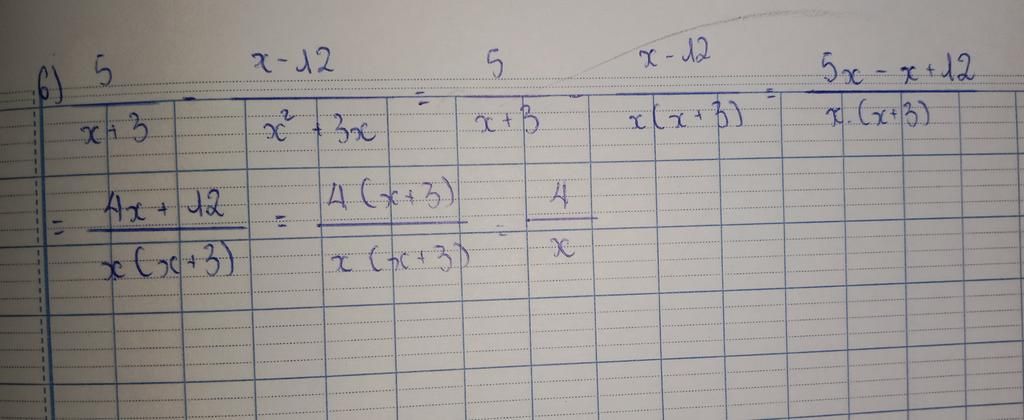 6) 5/(x+3) - (x-12)/(x² + 3x) = 5/(x+3) - (x-12)/(x(x+3)) = (5x - x + 12)/(x.(x+3))
= (4x + 12)/(x(x+3)) = 4(x+3)/(x(x+3)) = 4/x